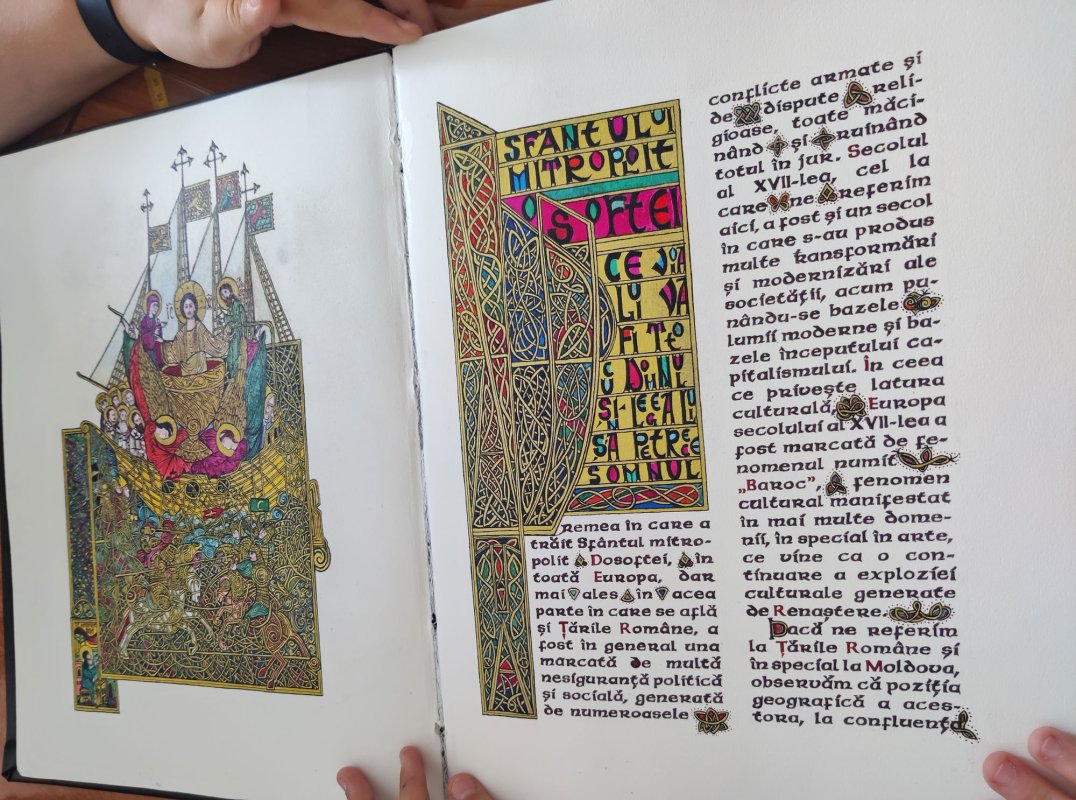 SFÂNTULUI
MITROPOLIT
OSOFTEI
CE
VA
FI
SĂ PETREC
SOMNUL
remea în care a
trăit Sfântul mitro-
polit Dosoftei, în
toată Europa, dar
mai ales în acea
parte în care se află
și Țările Române, a
fost în general una
marcată de multă
nesiguranță politică
și socială, generată
de numeroasele
conflicte armate și
de dispute reli-
gioase, toate măci-
nând și ruinând
totul în jur. Secolul
al XVII-lea, cel la
care ne referim
aici, a fost și un secol
în care s-au produs
multe transformări
și modernizări ale
societății, acum pu-
nându-se bazele
lumii moderne și ba-
zele începutului ca-
pitalismului. În ceea
ce privește latura
culturală, Europa
secolului al XVII-lea a
fost marcată de fe-
nomenul numit
„Baroc”, fenomen
cultural manifestat
în mai multe dome-
nii, în special în arte,
ce vine ca o con-
tinuare a exploziei
culturale generate
de Renaștere.
Dacă ne referim
la Țările Române și
în special la Moldova,
observăm că poziția
geografică a aces-
tora, la confluența